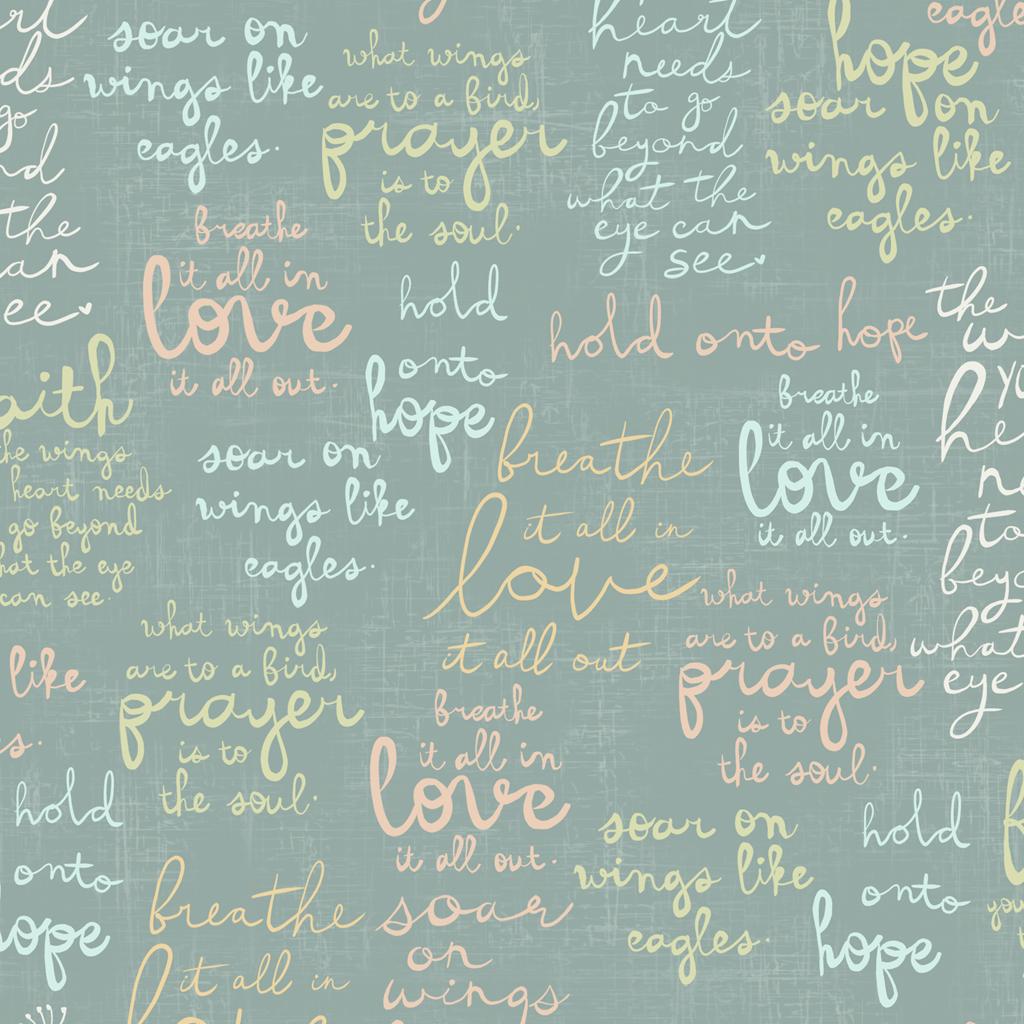 soar on
wings like
eagles.
what wings
are to a bird,
prayer
is to
the soul.
heart
needs
to go
beyond
what the
eye can
see
hope
eagles
soar on
wings like
eagles.
go
the
see
breathe
it all in
love
it all out.
hold
onto
hope
hold onto hope
the
faith
the wings
heart needs
go beyond
what the eye
can see.
soar on
wings like
eagles.
breathe
it all in
love
it all out
breathe
it all in
love
it all out.
to
what
eye
what wings
are to a bird,
prayer
is to
the soul.
what wings
are to a bird,
prayer
is to
the soul.
like
breathe
it all in
love
it all out.
hold
onto
hope
soar on
wings like
eagles.
hold
onto
hope
breathe
it all in
soar
on
wings